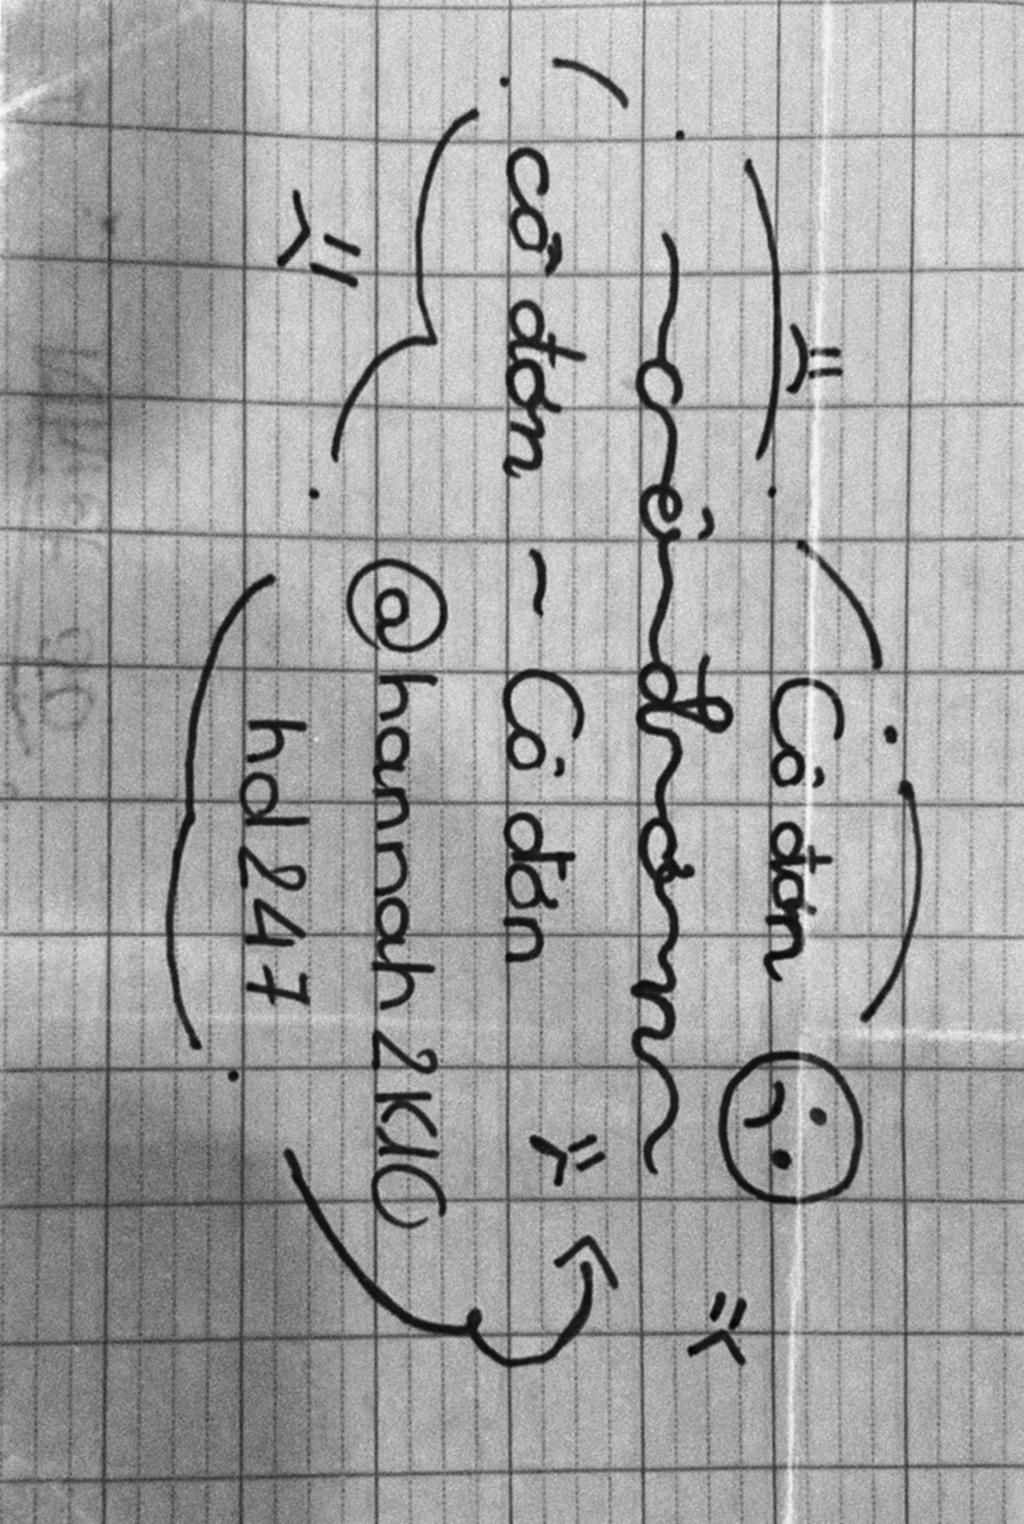 Cô đơn
cô đơn
cô đơn ~ Cô đơn
@hannah2K10
hd247